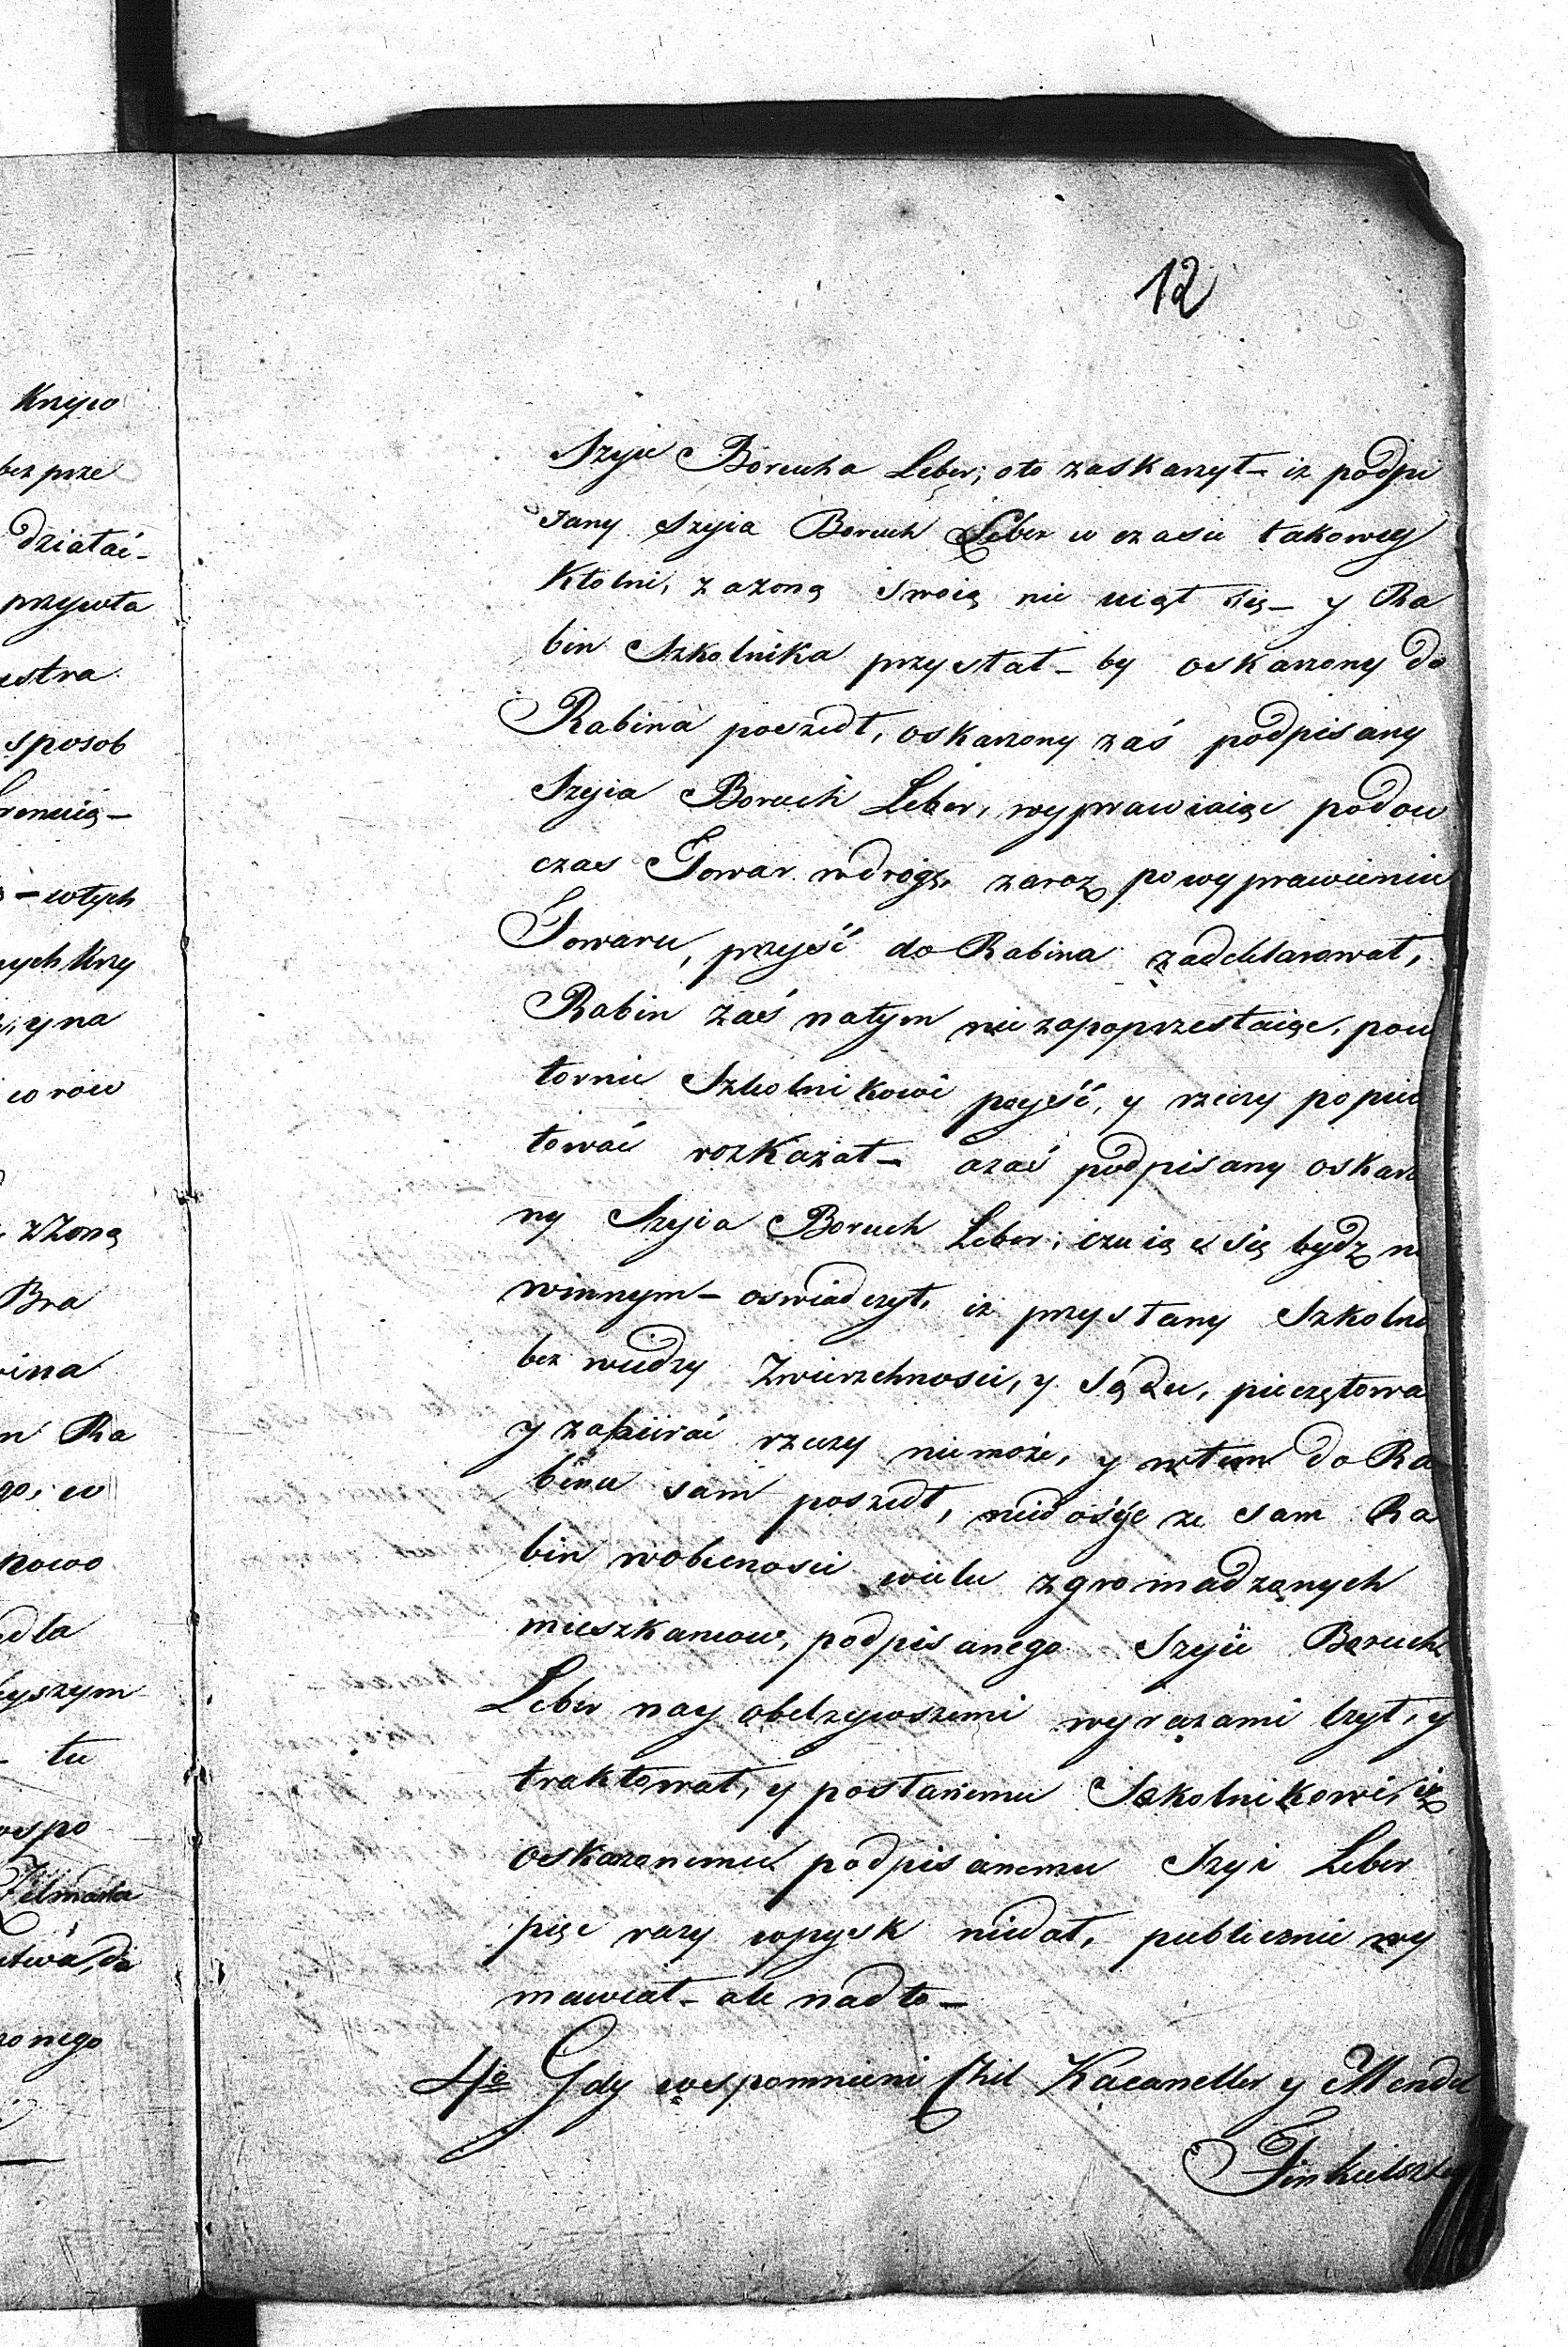 12
Szyie Borucha Leber; oto zaskarzył – iz podpi
sany Szyia Boruch Leber w czasie takowey
Kłotni, z a zoną swoią nie uiął się – y Ra
bin Szkolnika przystał – by oskarzony do
Rabina poszedł, oskarzony zaś podpisany
Szyia Boruch Leber, wyprawiaiąc podow
czas Towar w drogę, zaraz po wyprawieniu
Towaru, przyść do Rabina zadeklarował,
Rabin zaś natym nie zapoprzestaiąc, pow
tornie Szkolnikowi przyść, y rzeczy popie
tować rozkazał – a zaś podpisany oskarz
ny Szyia Boruch Leber; czuiąc się bydz ni
winnym – oswiadczył, iz przysłany Szkolni
bez wiedzy Zwierzchnosci, y Sądu, pieczętowa
y zabierać rzeczy niemoże, y wtem do Ra
bina sam poszedł, niedość ze sam Ra
bin wobecnosci wielu zgromadzonych
mieszkancow, podpisanego Szyii Boruch
Leber nay obelzywszemi wyrazami lzył, y
traktował, y posłanemu Szkolnikowi, iz
oskarzonemu podpisanemu Szyi Leber
pięc razy wpysk niedał, publicznie wy
mawiał – ale nadto –
4o Gdy wspomnieni Chil Kacaneller y Mendel
Finkielszte
Knywo
bez prze
działać –
przywła
estra
sposob
– wtych
ych Krzy
, y na
z Zoną
Bra
n Ra
go, w
nowo
dla
yszym
– tu
ospo
zonego